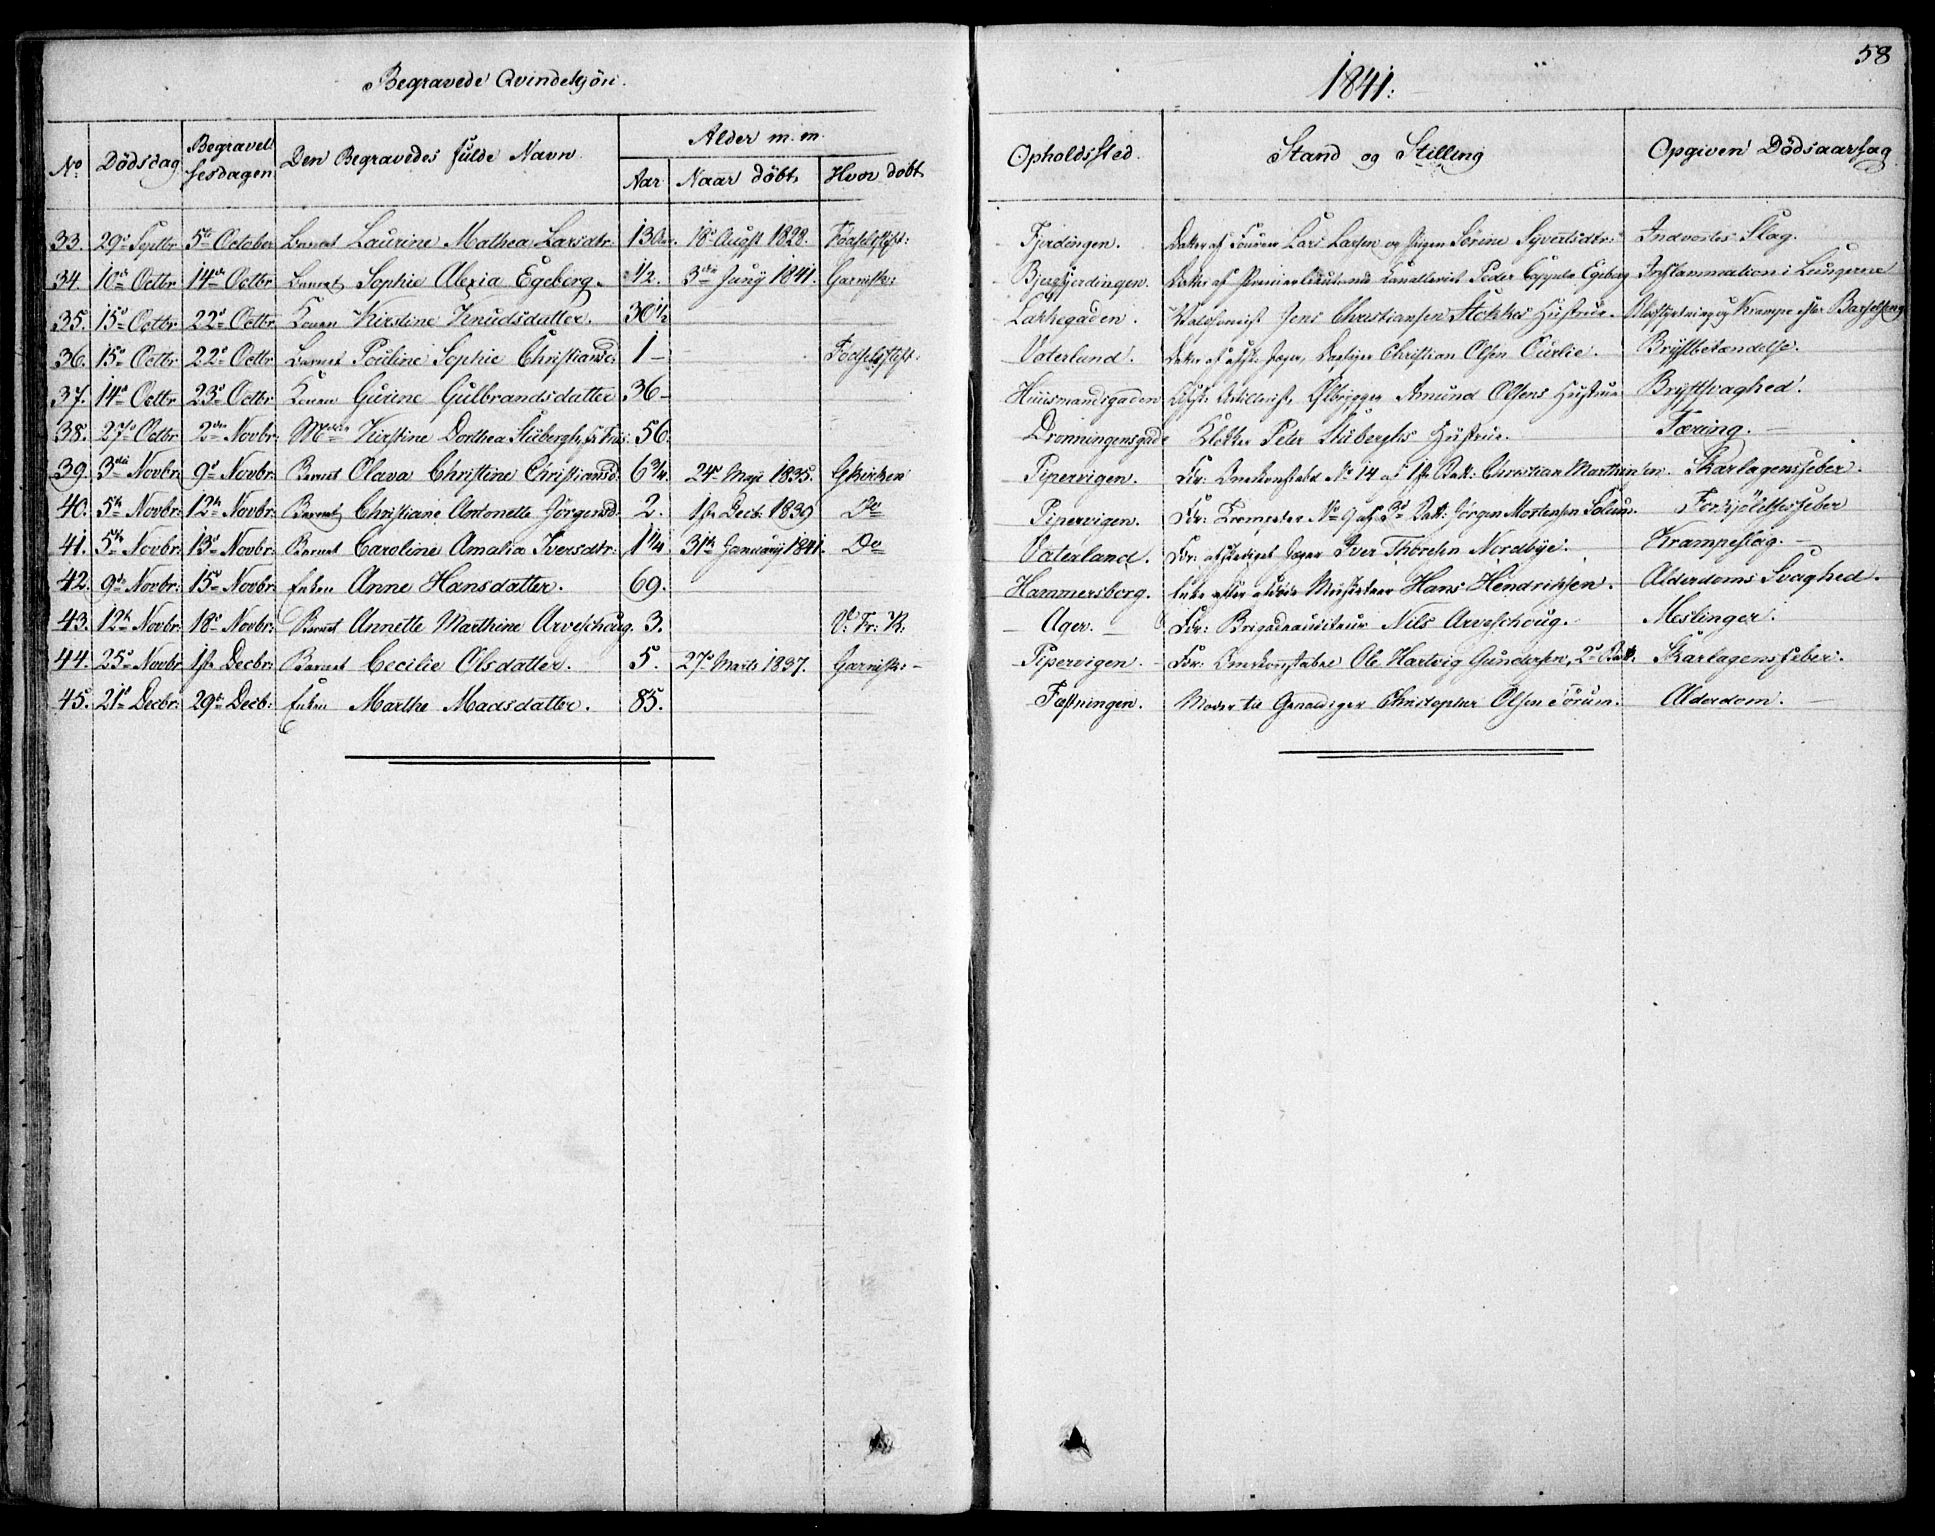 58
Begravede Qvindekjön.
1841.
No Dödsdag Begravelsesdagen Den Begravedes fulde Navn Alder m. m. Opholdssted. Stand og Stilling Opgiven Dödsaarsag
Aar Naar döbt Hvor döbt
33. 29de Septbr 5te October Barnet Laurine Mathea Larsdtr. 13 Aar. 18de August 1828. Fjerdingen. Datter af Lars Larsen og Pigen Sörine Syvertsdtr: Indvortes Slag.
34 10de Octbr 14de Octbr Barnet Sophie Alexia Egeberg. 1/2. 3die Juny 1841. Garnisk: Bjergfjerdingen. Datter af Premierlieutenant Peder Egeberg Inflammation i Lungerne
35. 15de Octbr 22de Octbr Konen Kirstine Knudsdatter. 30 1/2 Lakkegaden. Jens Christiansen Stokkes Hustrue. Krampe efter Barselseng
36. 15de Octbr 22de Octbr Barnet Pouline Sophie Christiansd: 1 Vaterland. Datter af Christian Olsen Brystbetændelse.
37. 14de Octbr 23de Octbr Konen Gurine Gulbrandsdatter 36 Huusmandsgaden Amund Olsens Hustrue Brystsvaghed.
38. 27de Octbr 2den Novbr: Kirstine Dorthea Stubergh, 56. Dronningensgade Klokker Peter Stuberghs Hustrue. Tæring.
39. 3die Novbr: 9de Novbr: Barnet Olava Christine Christiansd: 6 3/4. 24de Maji 1835. Gkirken Pipervigen. Fdr: No 14 af 1ste Batt: Christian Skarlagensfeber.
40. 5te Novbr: 12te Novbr: Barnet Christiane Antonette Jörgensd: 2. 1ste Decb: 1839 Do Pipervigen. Fdr: No 9 af 3de Batt: Jörgen Mortensen Solum. Forkjölelsesfeber
41. 5te Novbr: 13de Novbr: Barnet Caroline Amalia Iversdtr: 1 1/4. 31te January 1841. Do Vaterland. Fdr: afskediget Jæger Iver Thoresen Nordbye. Krampeslag.
42. 9de Novbr: 15de Novbr: Enken Anne Hansdatter. 69. Hammersborg. Enke efter Musketeer Hans Hendrichsen. Alderdoms Svaghed.
43. 12te Novbr: 18de Novbr: Barnet Annette Marthine Arveschoug. 3. V: Fr: K: Ager. Fdr: Brigadeauditeur Nils Arveschoug. Meslinger.
44. 25de Novbr 1ste Decbr: Barnet Cecilie Olsdatter. 5. 27de Marts 1837. Garnisk: Pipervigen. Fdr: Ole Hartvig Gundersen, 2den Batt. Skarlagensfeber.
45. 21de Decbr: 29de Decb: Enken Marthe Madsdatter. 85. Fæstningen. Moder til Christopher Olsen Sörum. Alderdom.